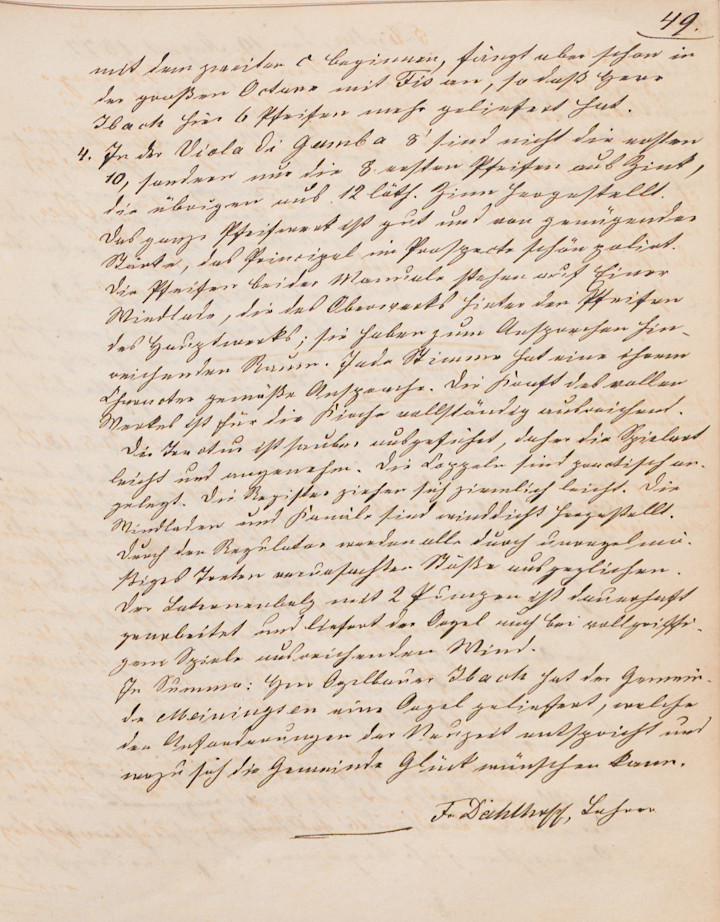 49.
mit dem zweiten c beginnen, fängt aber schon in
der großen Octave mit Fis an, so daß Herr
Ibach hier 6 Pfeifen mehr geliefert hat.
4. In der Viola di Gamba 8' sind nicht die ersten
10, sondern nur die 8 ersten Pfeifen aus Zink,
die übrigen aus 12 löth. Zinn hergestellt.
Das ganze Pfeifwerk ist gut und von genügender
Stärke, das Principal im Prospecte schön polirt.
Die Pfeifen beider Manuale stehen auf Einer
Windlade, die des Oberwerks hinter den Pfeifen
des Hauptwerks; sie haben zum Ansprechen hin-
reichenden Raum. Jede Stimme hat eine ihrem
Character gemäße Ansprache. Die Kraft des vollen
Werkes ist für die Kirche vollständig ausreichend.
Die Tractur ist sauber ausgeführt, daher die Spielart
leicht und angenehm. Die Coppeln sind practisch an-
gelegt. Die Register ziehen sich ziemlich leicht. Die
Windladen und Kanäle sind winddicht hergestellt.
Durch den Regulator werden alle durch unregelmä-
ßiges Treten verursachten Stöße ausgeglichen.
Der Laternenbalg mit 2 Pumpen ist dauerhaft
gearbeitet und liefert der Orgel auch bei vollgriffi-
gem Spiele ausreichenden Wind.
In Summa: Herr Orgelbauer Ibach hat der Gemein-
de Meiningsen eine Orgel geliefert, welche
den Anforderungen der Neuzeit entspricht und
wozu sich die Gemeinde Glück wünschen kann.
Fr. Dahlhoff, Lehrer